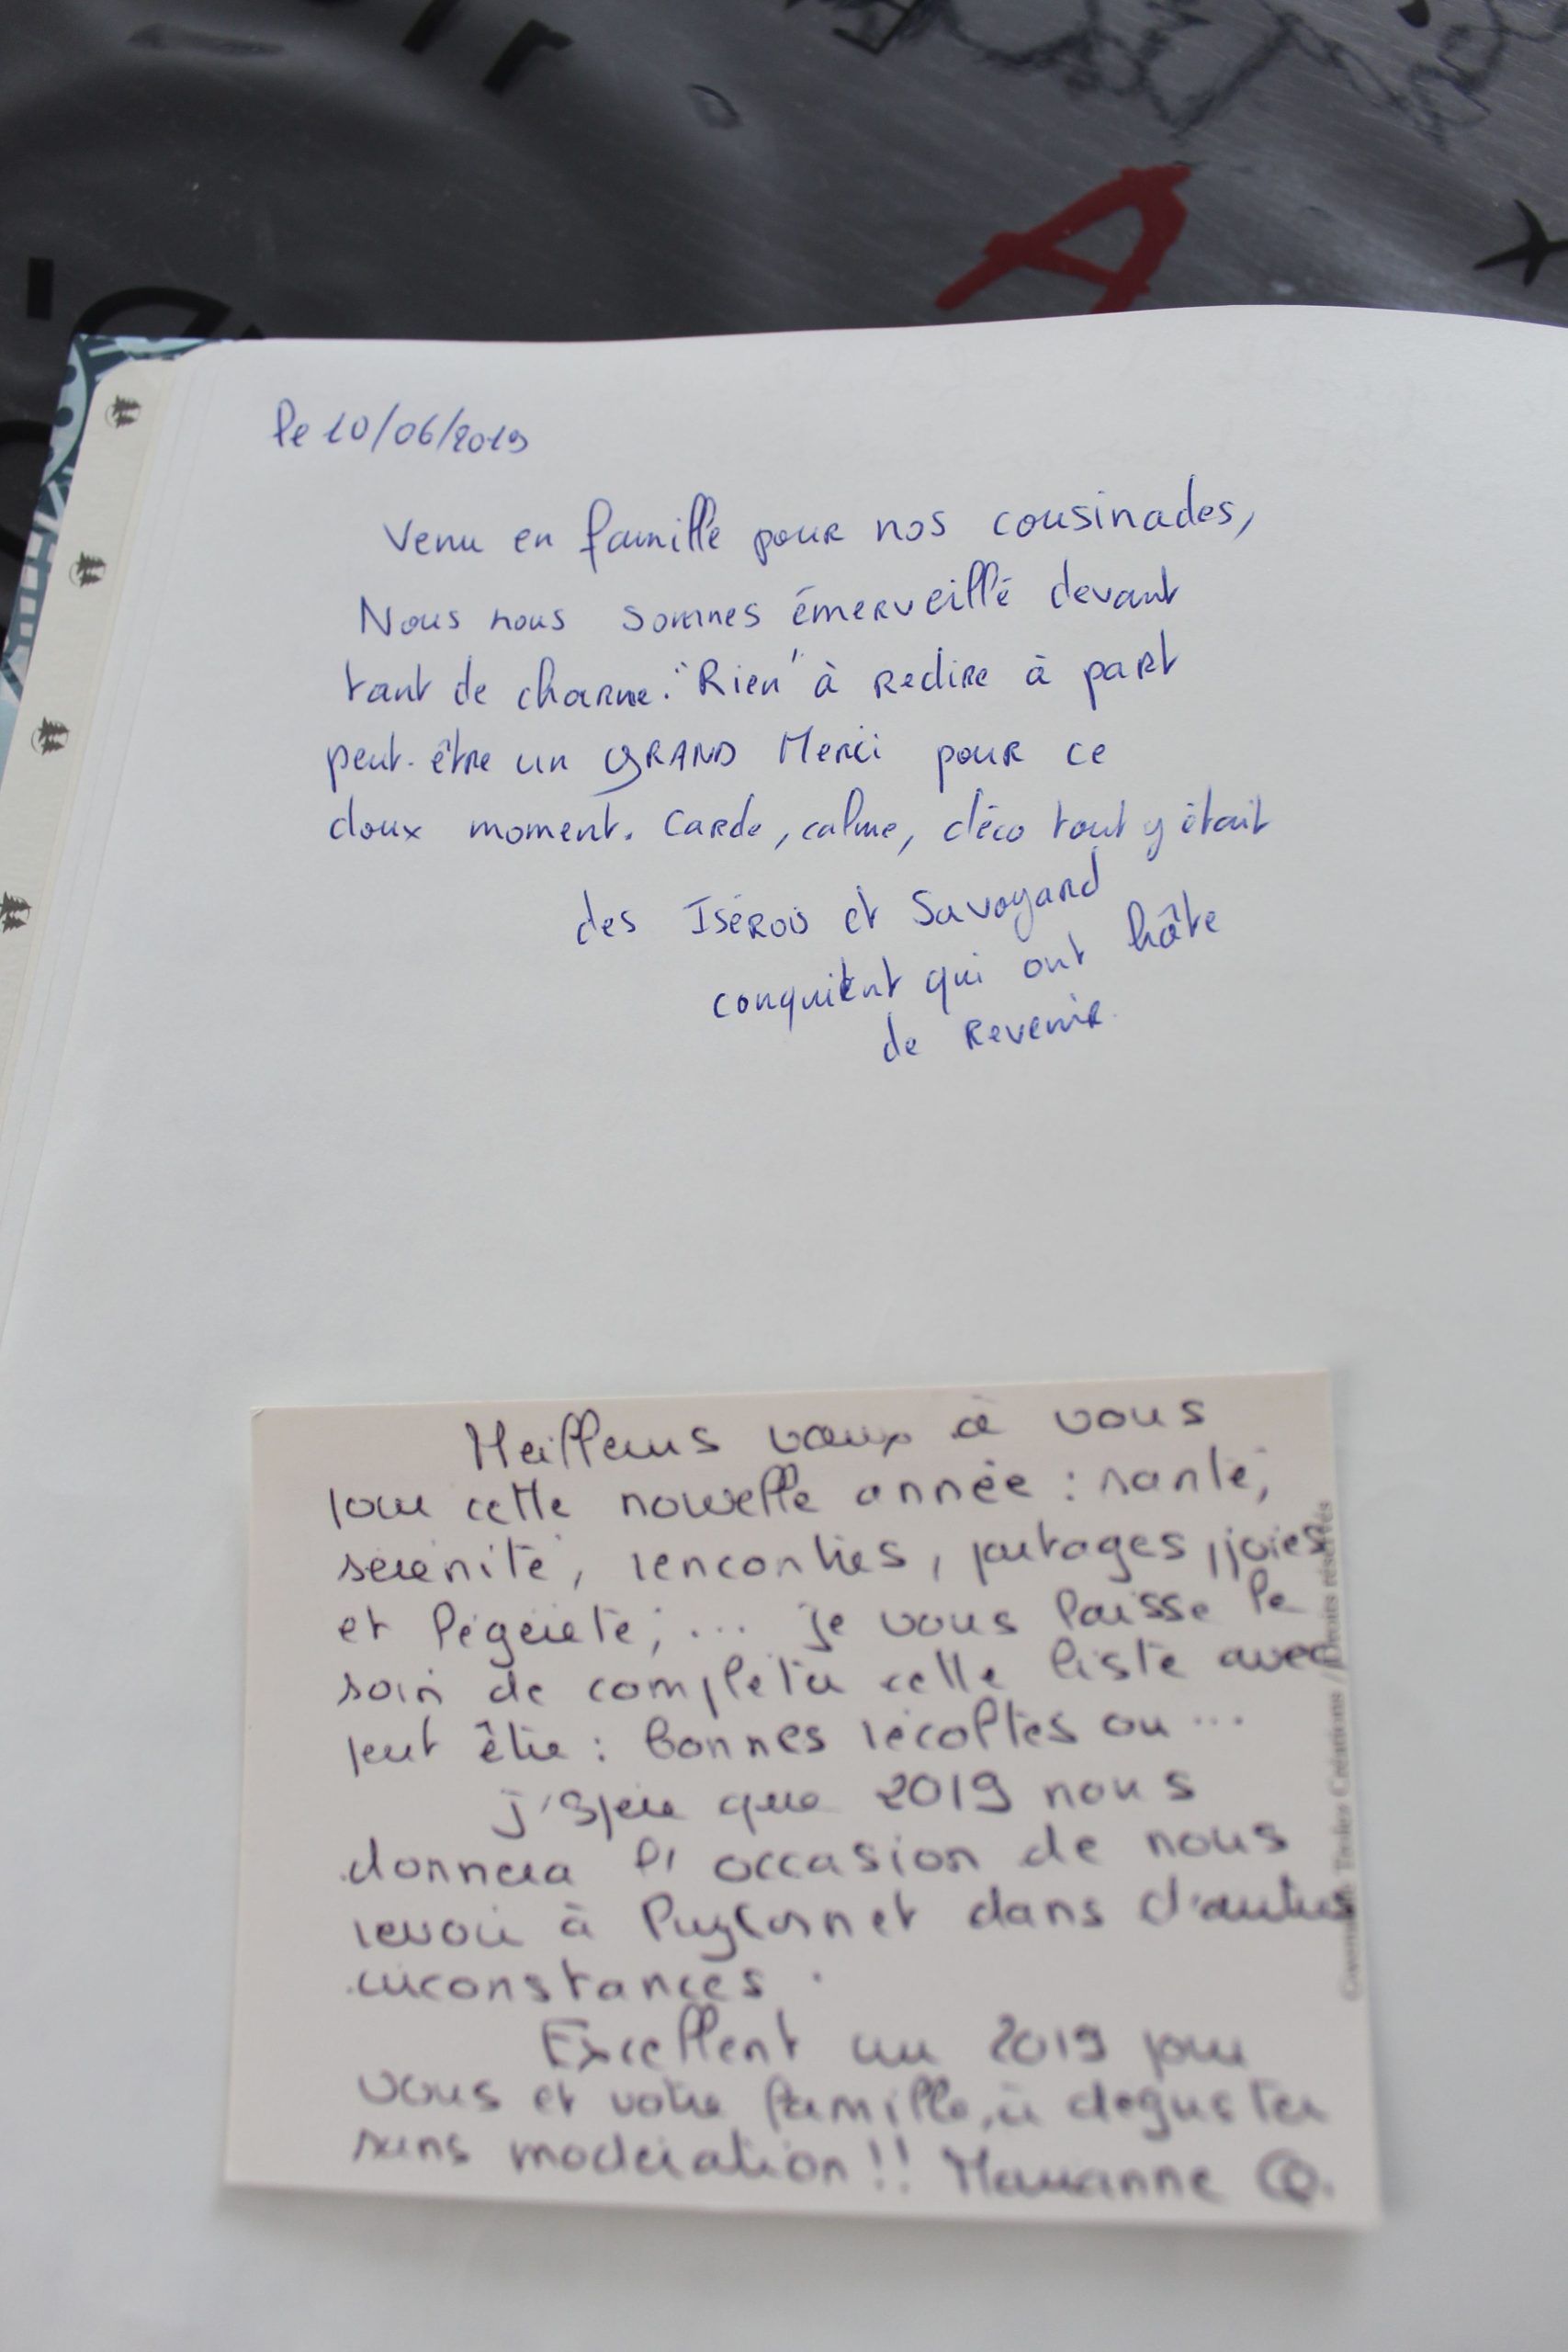 A
le 10/06/2019
Venu en famille pour nos cousinades,
Nous nous sommes émerveillé devant
tant de charme. "Rien" à redire à part
peut-être un GRAND Merci pour ce
doux moment. Carde, calme, déco tout y était
des Isérois et Savoyard
qui ont hâte
de revenir.
Meilleurs vœux à vous
pour cette nouvelle année : santé,
sérénité, rencontres, partages, joies
et légèreté, ... je vous laisse le
soin de compléter cette liste avec
peut être : bonnes récoltes ou ...
j'espère que 2019 nous
donnera l'occasion de nous
revoir à Puycornet dans d'autres
circonstances.
Excellent an 2019 pour
vous et votre famille, à déguster
sans modération !! Marianne
Créations / Droits réservés